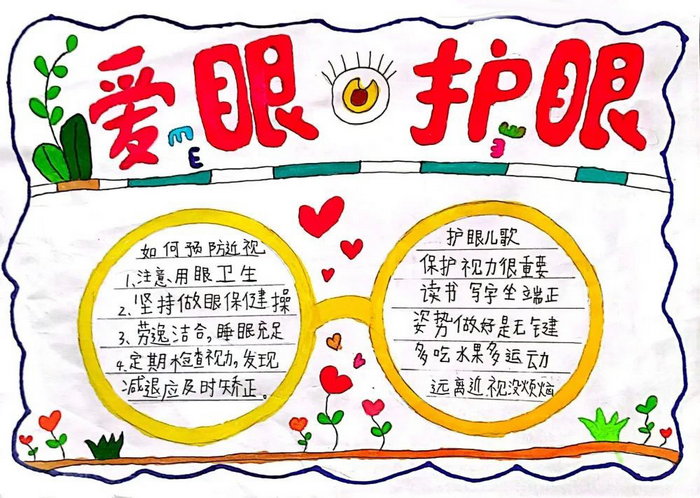 爱眼护眼
如何预防近视
1、注意用眼卫生
2、坚持做眼保健操
3、劳逸洁合,睡眠充足
4、定期检查视力,发现
减退应及时矫正。
护眼儿歌
保护视力很重要
读书写字坐端正
姿势做好是无键
多吃水果多运动
远离近视没烦恼